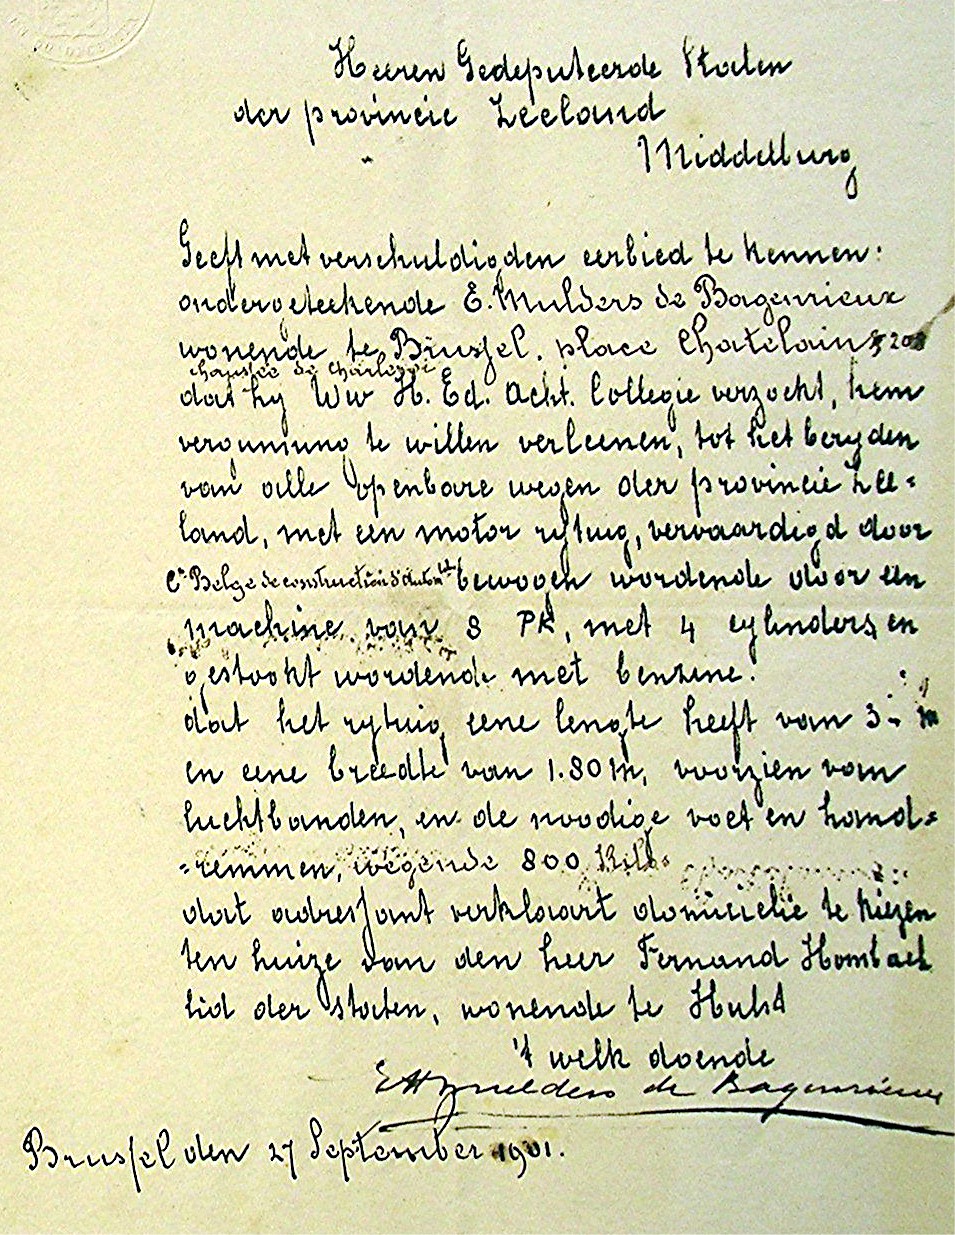 Heeren Gedeputeerde Staten
der provincie Zeeland
Middelburg
Geeft met verschuldigden eerbied te kennen:
ondergeteekende E. Mulders de Bagenrieux
wonende te Brussel. place Chatelain 20
chaussée de Charleroi
dat hij Uw H. Ed. Acht. Collegie verzoekt, hem
vergunning te willen verleenen, tot het beryden
van alle openbare wegen der provincie Zee=
land, met een motor rytuig, vervaardigd door
Cie Belge de construction d'autom bewogen wordende door een
machine van 8 PK, met 4 cylinders en
gestookt wordende met benzine.
dat het rytuig eene lengte heeft van 3.- m
en eene breedte van 1.80 m, voorzien van
luchtbanden, en de noodige voet en hand=
=remmen, wegende 800 Kilo
dat adressant verklaart domicielie te kiezen
ten huize van den heer Fernand Hombach
lid der staten, wonende te Hulst
't welk doende
E Mulders de Bagenrieux
Brussel den 27 September 1901.